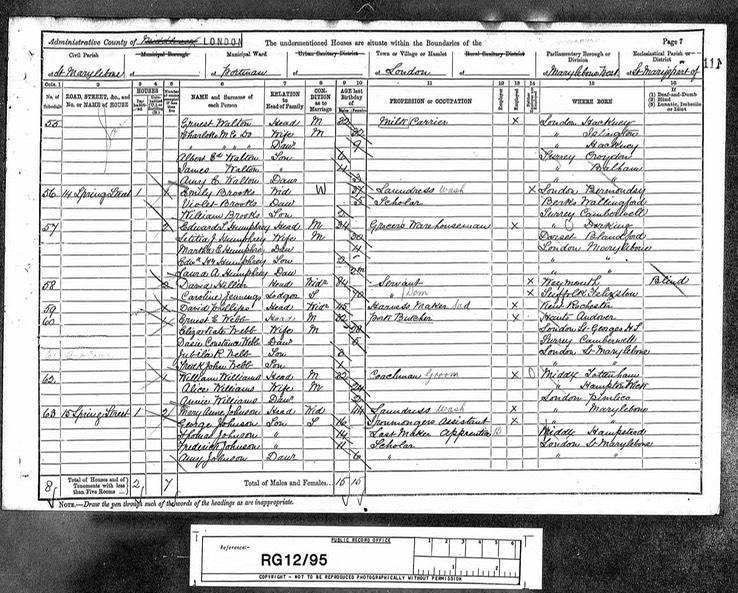 Administrative County of Middlesex LONDON The undermentioned Houses are situate within the Boundaries of the Page 7
Civil Parish Municipal Borough Municipal Ward Urban Sanitary District Town or Village or Hamlet Rural Sanitary District Parliamentary Borough or Division Ecclesiastical Parish or District
of St Marylebone of of Portman of of London of of Marylebone West of St Mary part of 111
Cols. 1 2 3 4 5 6 7 8 9 10 11 12 13 14 15 16
No. of Schedule ROAD, STREET, &c., and No. or NAME of HOUSE HOUSES NAME and Surname of each Person RELATION to Head of Family CONDITION as to Marriage AGE last Birthday of Males Females PROFESSION or OCCUPATION Employer Employed WHERE BORN If (1) Deaf-and-Dumb (2) Blind (3) Lunatic, Imbecile or Idiot
55 Ernest Walton Head M 32 Milk Carrier x London Hackney
Charlotte M. E. Do Wife M " Islington
" " " Daur 9 " Hackney
Albert Ed Walton Son 6 Surrey Croydon
James Walton " 4 " Balham
Amy E. Walton Daur " "
56 14 Spring Street 1 Emily Brooks Wid W 27 Laundress Wash x London Bermondsey
Violet Brooks Daur 5 Scholar Berks Wallingford
William Brooks Son 2 Surrey Camberwell
57 2 Edward S. Humphrey Head M 34 Grocers Warehouseman x " Dorking
Letitia J. Humphrey Wife M 30 Dorset Blandford
Martha E Humphrey Daur 4 London Marylebone
Edwd Hy Humphrey Son 2 " "
Laura A. Humphrey Daur 2m " "
58 David Hellier Head Widr 84 Servant x Weymouth Blind
Caroline Jennings Lodger S 70 " Dom x Suffolk Felixstow
59 David Phillips Head Widr 45 Harness Maker Sad x Kent Rochester
60 Ernest E Webb Head M 32 Pork Butcher x Hants Andover
Elizth Kate Webb Wife M 28 London St Georges H S
Daisie Constance Webb Daur 5 Surrey Camberwell
Jubilee R. Webb Son 3 London St Marylebone
Fredk John Webb Son 1 "
62 William Williams Head M 32 Coachman Groom x Middx Tottenham
Alice Williams Wife M 24 " Hampton Wick
Annie Williams Daur 2 London Pimlico
63 15 Spring Street 1 2 Mary Anne Johnson Head Wid 44 Laundress Wash x " Marylebone
George Johnson Son S 16 Ironmongers Assistant x " "
Thomas Johnson " 14 Last Maker Apprentice Middx Hampstead
Frederick Johnson " 11 Scholar London St Marylebone
Amy Johnson Daur 6 " "
8 Total of Houses and of Tenements with less than Five Rooms 2 7 Total of Males and Females... 15 15
NOTE.—Draw the pen through such of the words of the headings as are inappropriate.
PUBLIC RECORD OFFICE
Reference:-
RG12/95
1 2 3 4 5 6
COPYRIGHT - NOT TO BE REPRODUCED PHOTOGRAPHICALLY WITHOUT PERMISSION